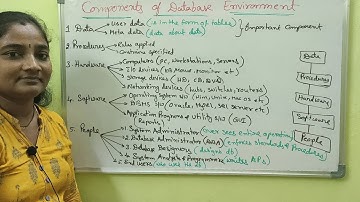 Components of Database Environment
1. Data
User data (is in the form of tables)
Meta data (data about data)
Important Component
2. Procedures
Rules applied
Customs specified
3. Hardware
Computers (PC, workstations, servers)
I/O devices (KB, Mouse, monitor etc)
Storage devices (HD, CD,
Networking devices (hubs, switches, routers)
4. Software
Operating system s/w (Win, Unix, Mac OS etc)
DBMS s/w (Oracle, MySQL, SQL server etc)
Application Programs & Utility s/w (GUI)
(Reports)
5. People
1. System Administrator (over sees entire operation)
2. Database Administrator (DBA) (enforces standards & Procedures)
3. Database Designers (designs db)
4. System Analysts & Programmers (writes APs)
5. End users (who use the db)
Data
Procedures
Hardware
Software
People